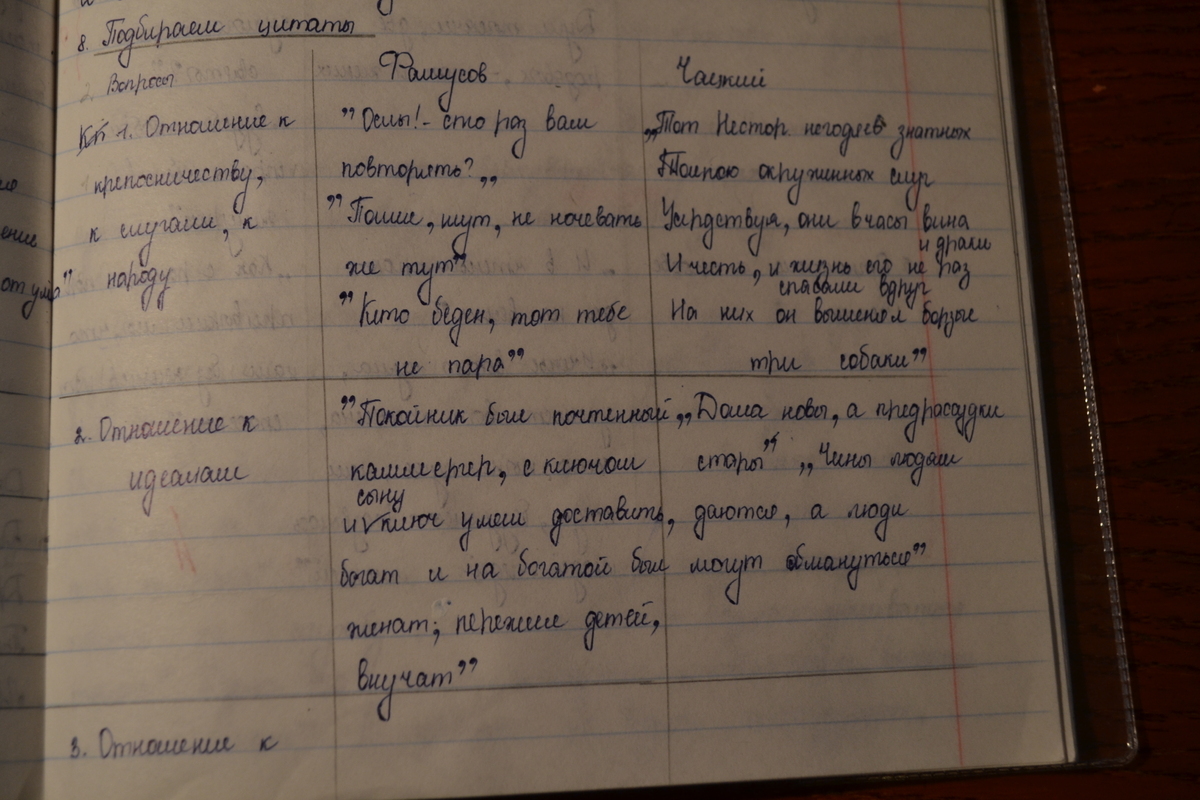 8. Подбираем цитаты
Вопросы Фамусов Чацкий
1. Отношение к
крепосничеству,
к слугами, к
народу
"Ослы! - сто раз вам
повторять?"
"Пошие, шут, не ночевать
же тут"
"Кто беден, тот тебе
не пара"
„Тот Нестор негодяев знатных
Толпою окруженных слуг
Усердствуя, они в часы вина
и драки
И честь, и жизнь его не раз
спасали вдруг
На них он выменял борзые
три собаки"
2. Отношение к
идеалам
"Покойник был почтенный
каммергер, с ключом
сыну
и ключ умел доставить,
богат и на богатой был
женат; пережил детей,
внучат"
„Дома новы, а предрассудки
стары" „Чины людям
даются, а люди
могут обмануться"
3. Отношение к
ение
от ума"